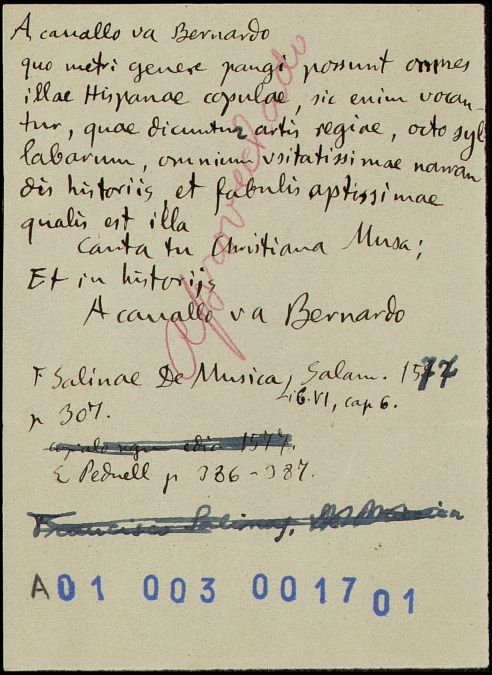 A cavallo va Bernardo
quo metri genere pangi possunt omnes
illae Hispanae copulae, sic enim vocan-
tur, quae dicuntur artis regiae, octo syl
labarum, omnium vsitatissimae narran
dis historiis et fabulis aptissimae
qualis est illa
Canta tu Christiana Musa;
Et in historijs
A cauallo va Bernardo
Aprovechado
F Salinae De Musica, Salam. 1577
Lib. VI, cap 6.
p 307.
copialo segun edic 1577.
E Pedrell p 386-387.
Francisco Salinas, De Musica
A01 003 0017 01